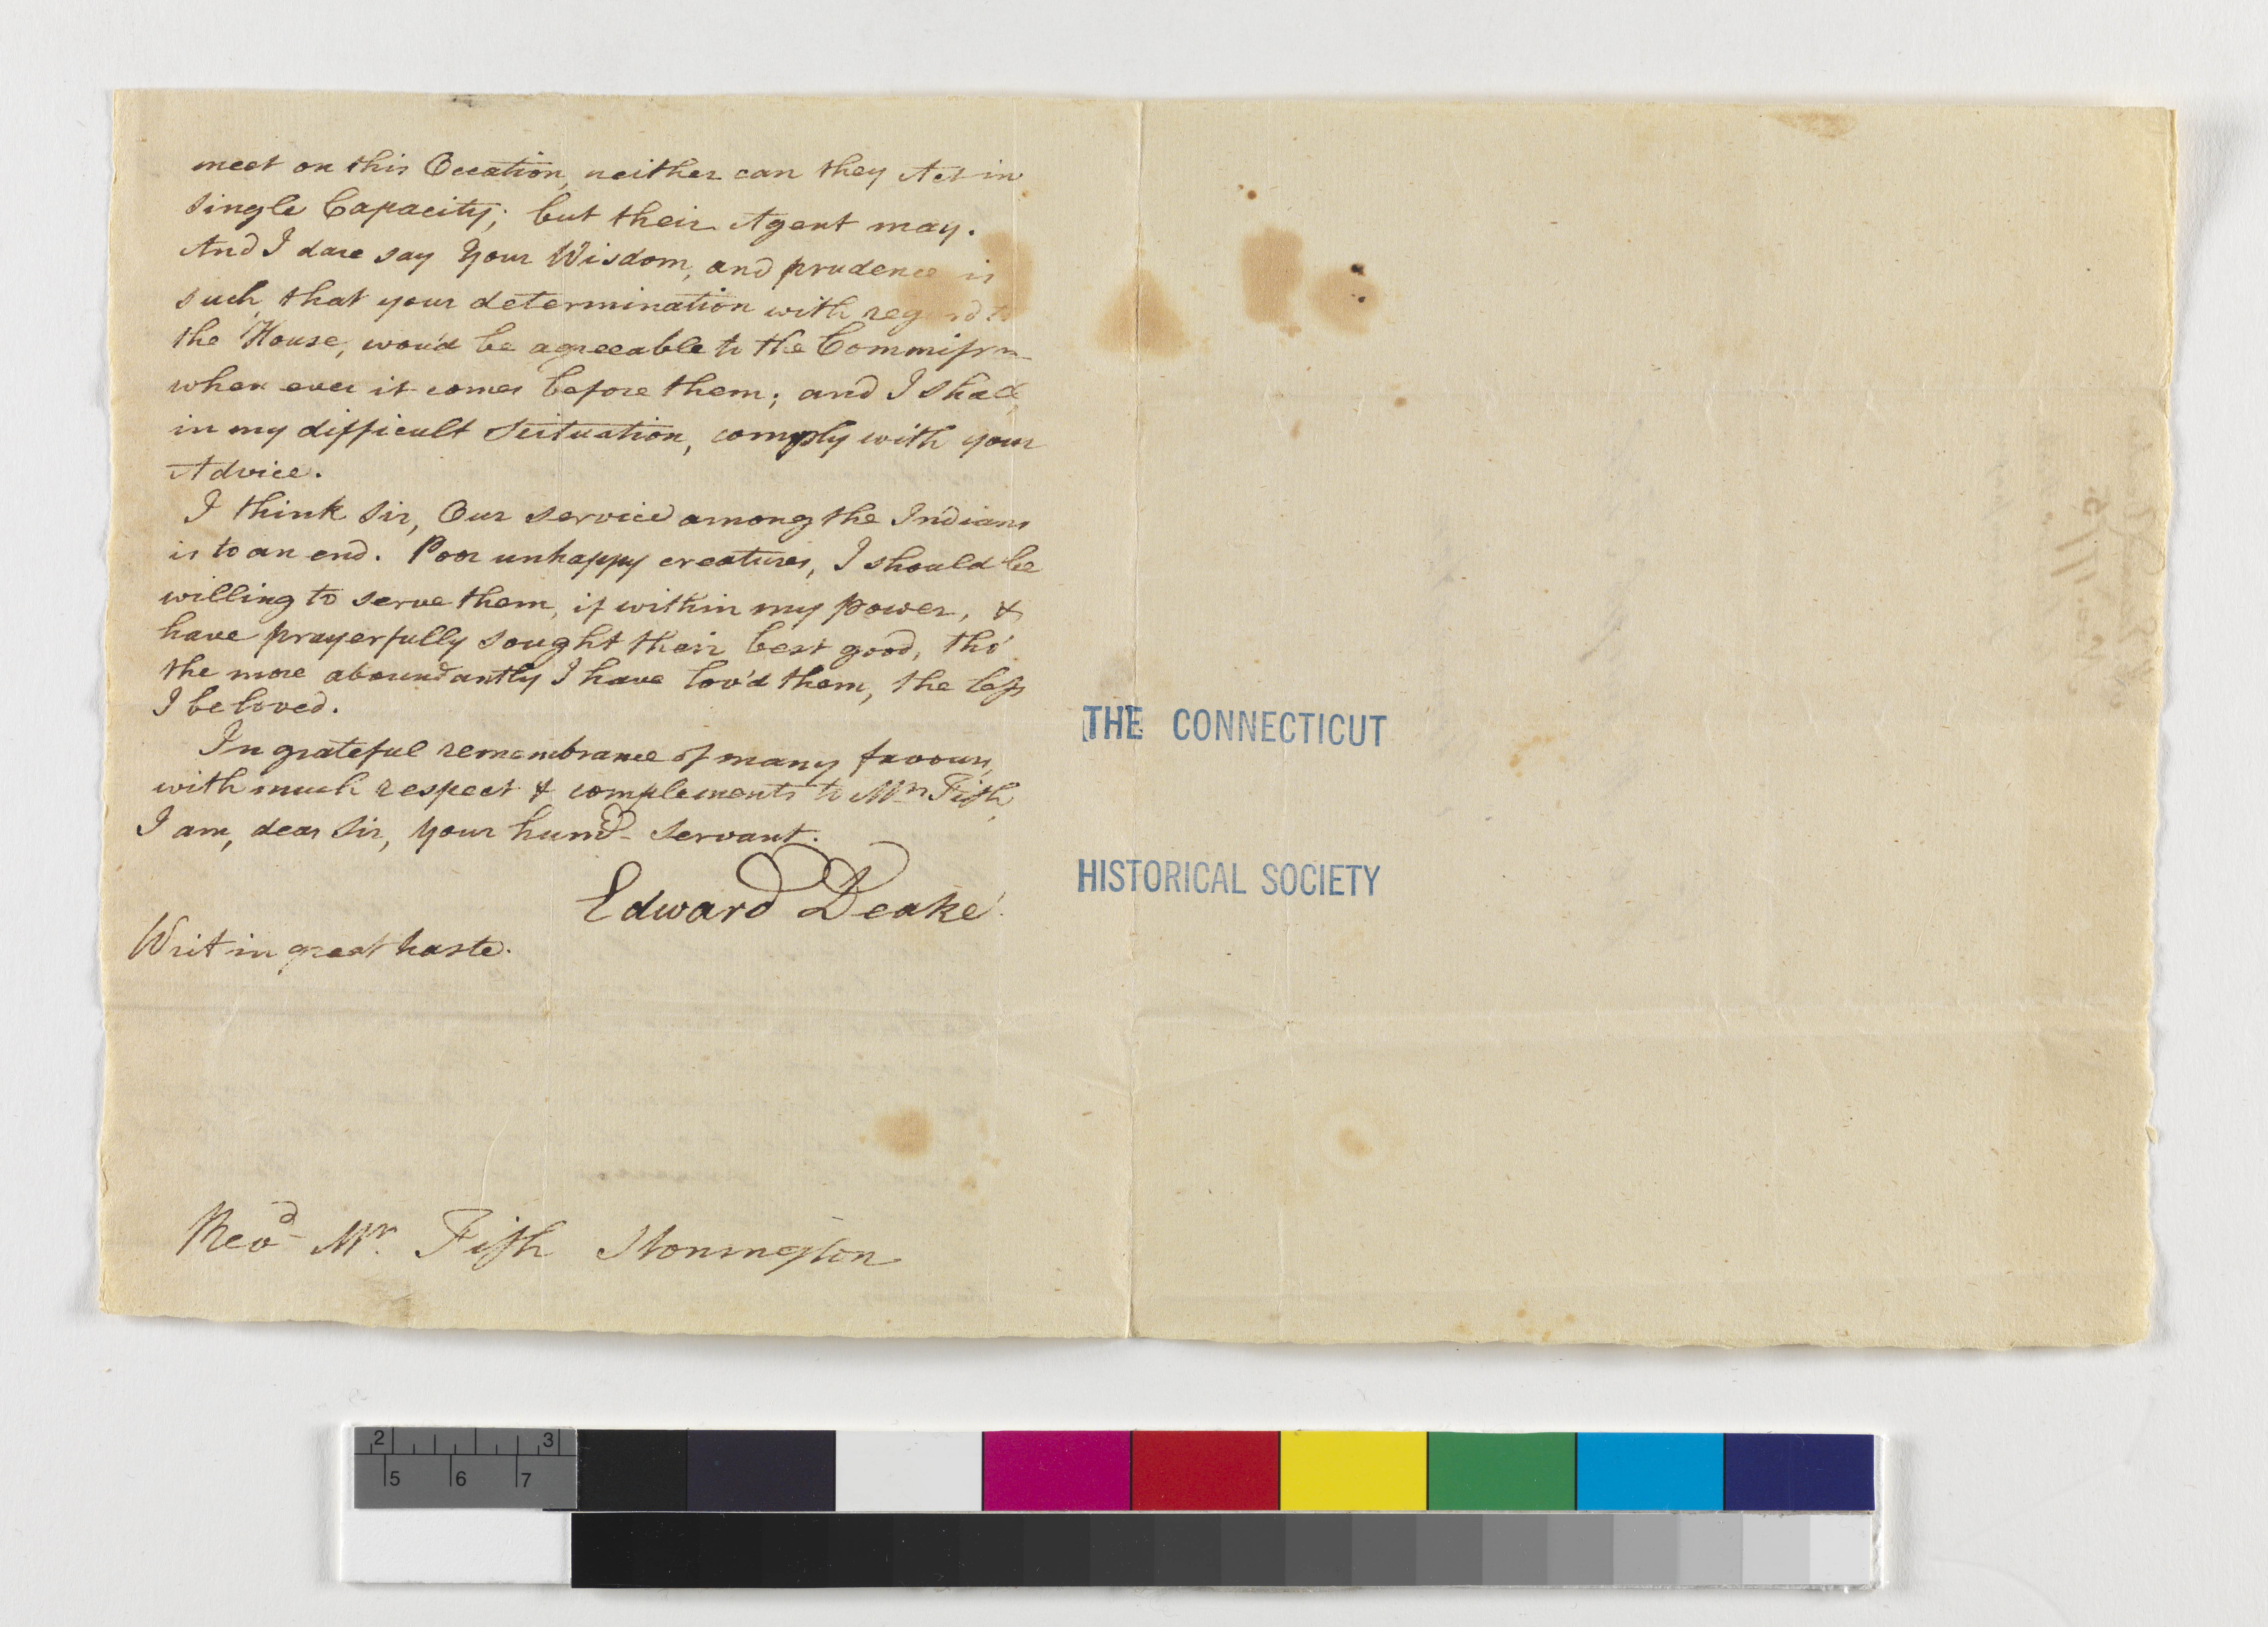 meet on this Occation, neither can they Act in
single Capacity; but their Agent may.
And I dare say Your Wisdom, and prudence is
such, that your determination with regard to
the House, wou'd be agreeable to the Commissrs
when ever it comes before them; and I shall,
in my difficult Scituation, comply with your
Advice.
I think Sir, Our service among the Indians
is to an end. Poor unhappy creatures, I should be
willing to serve them, if within my power, &
have prayerfully sought their best good, tho'
the more aboundantly I have lov'd them, the less
I be loved.
In grateful remembrance of many favours,
with much respect & complements to Mrs Fish,
I am, dear Sir, Your humd servant.
Edward Deake.
Writ in great haste.
Revd Mr. Fish Stonington
THE CONNECTICUT
HISTORICAL SOCIETY
2 3
5 6 7